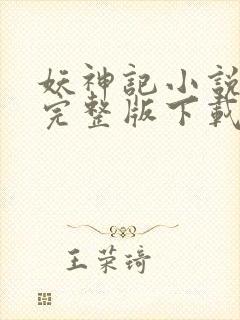 妖神記小說
完整版下載
王荣琦